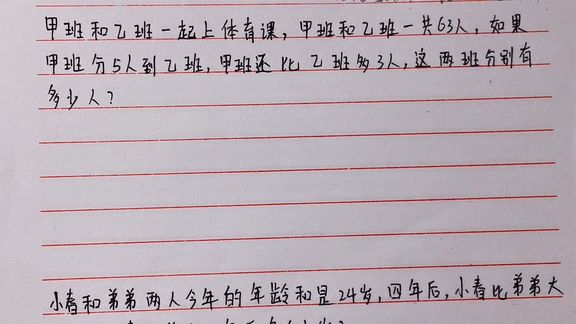 甲班和乙班一起上体育课,甲班和乙班一共63人,如果
甲班分5人到乙班,甲班还比乙班多3人,这两班分别有
多少人?
小春和弟弟两人今年的年龄和是24岁,四年后,小春比弟弟大